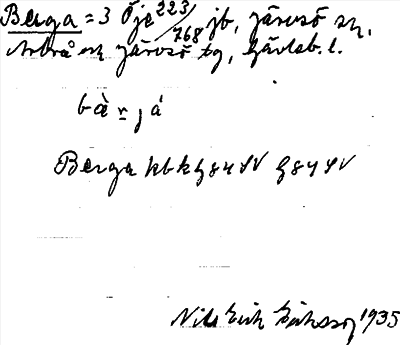 Berga = 3 Öje 223/768 jb, Järvsö sn,
Arbrå o. Järvsö tg, Gävleb. l.
bàrjá
Berga kbk G84 SV G84 SV
Nils Erik Eriksson 1935